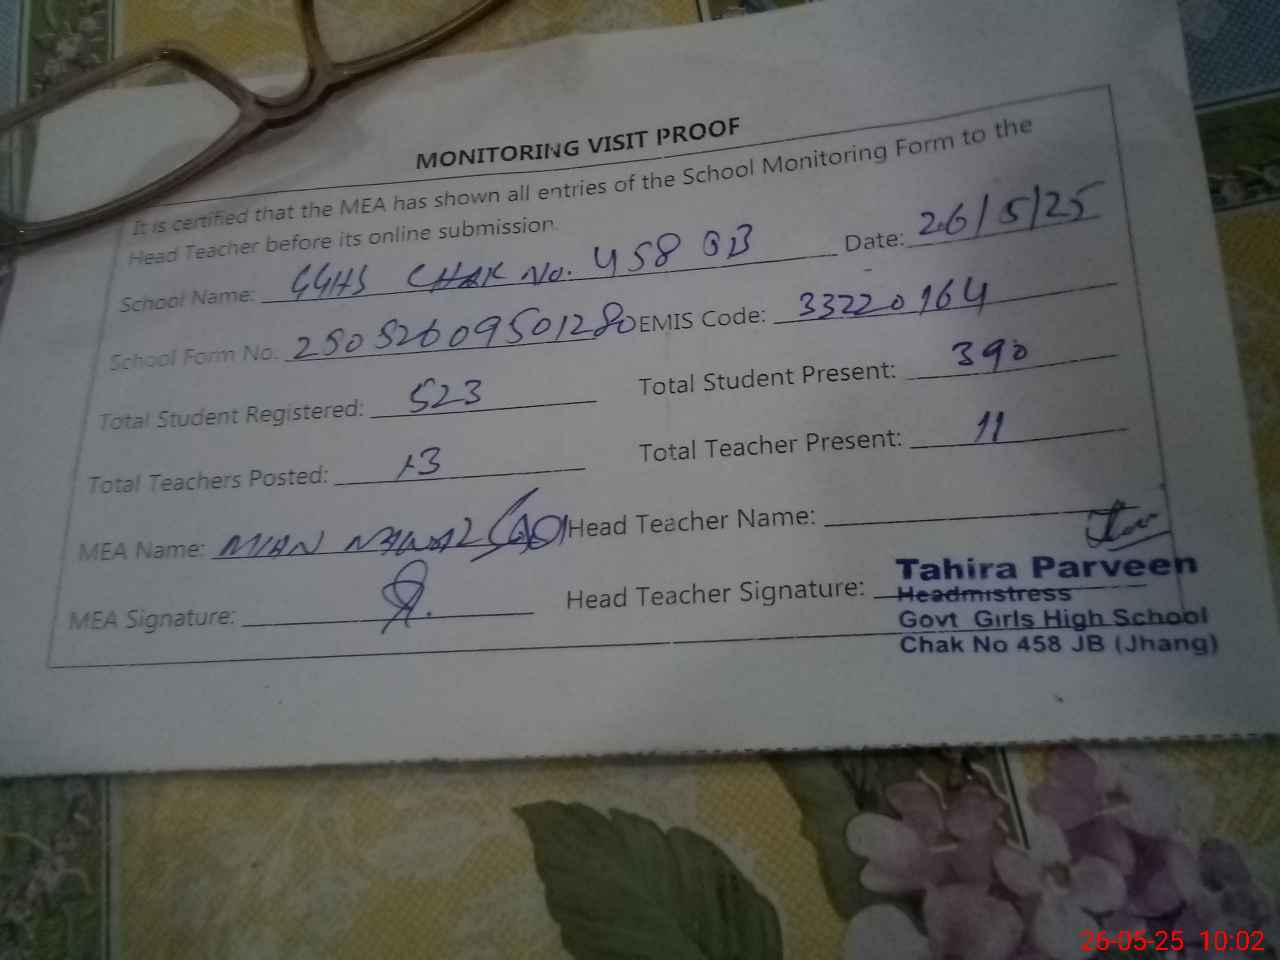 MONITORING VISIT PROOF
It is certified that the MEA has shown all entries of the School Monitoring Form to the
Head Teacher before its online submission.
School Name: GGHS CHAK No. 458 JB Date: 26/5/25
School Form No. 25052609501280 EMIS Code: 33220164
Total Student Registered: 523 Total Student Present: 390
Total Teachers Posted: 13 Total Teacher Present: 11
MEA Name: MIAN NAWAZ Head Teacher Name:
MEA Signature: Head Teacher Signature:
Tahira Parveen
Headmistress
Govt Girls High School
Chak No 458 JB (Jhang)
26-05-25 10:02